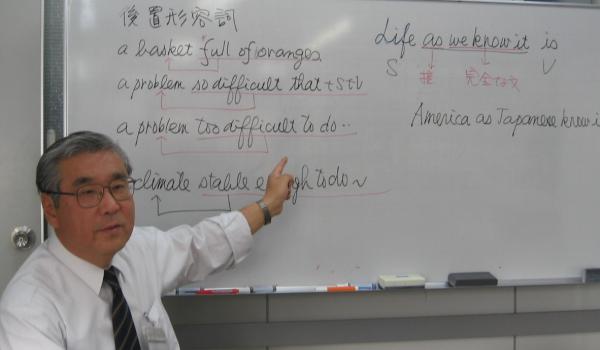 後置形容詞
a basket full of oranges
a problem so difficult that +S+V
a problem too difficult to do ..
climate stable enough to do ~
Life as we know it is
S 接 完全な文 V
America as Japanese know i